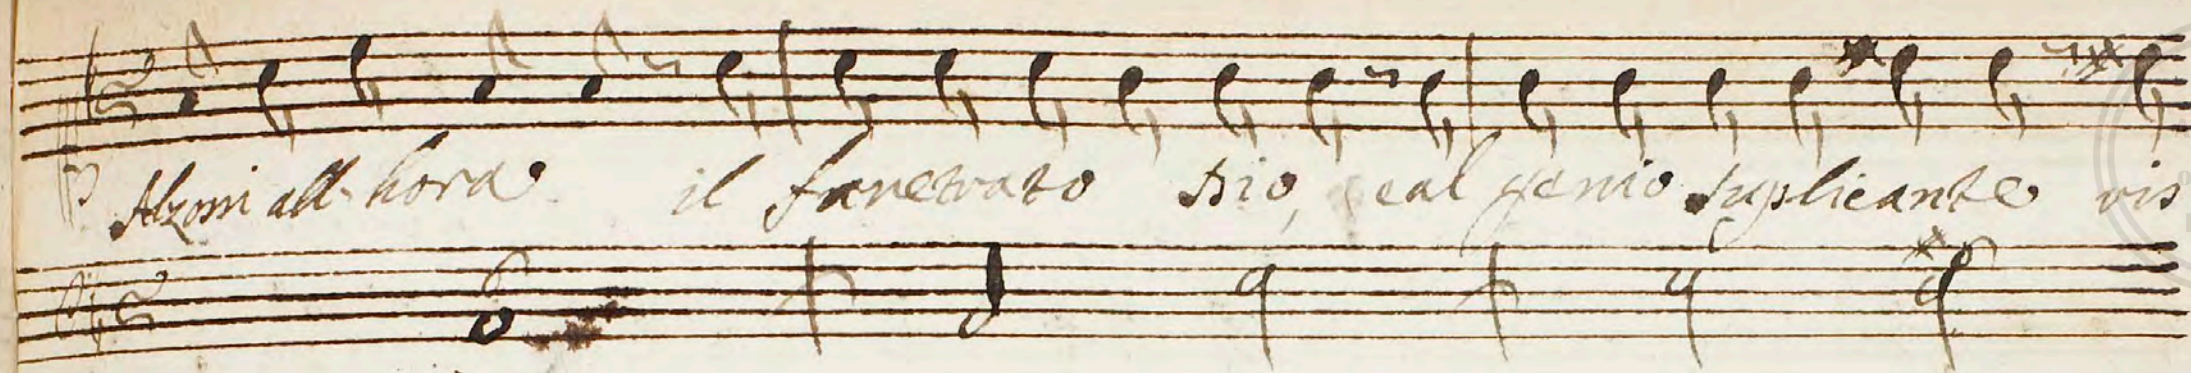 Alzomi all-hora il faretrato Dio, e al genio suplicante vis